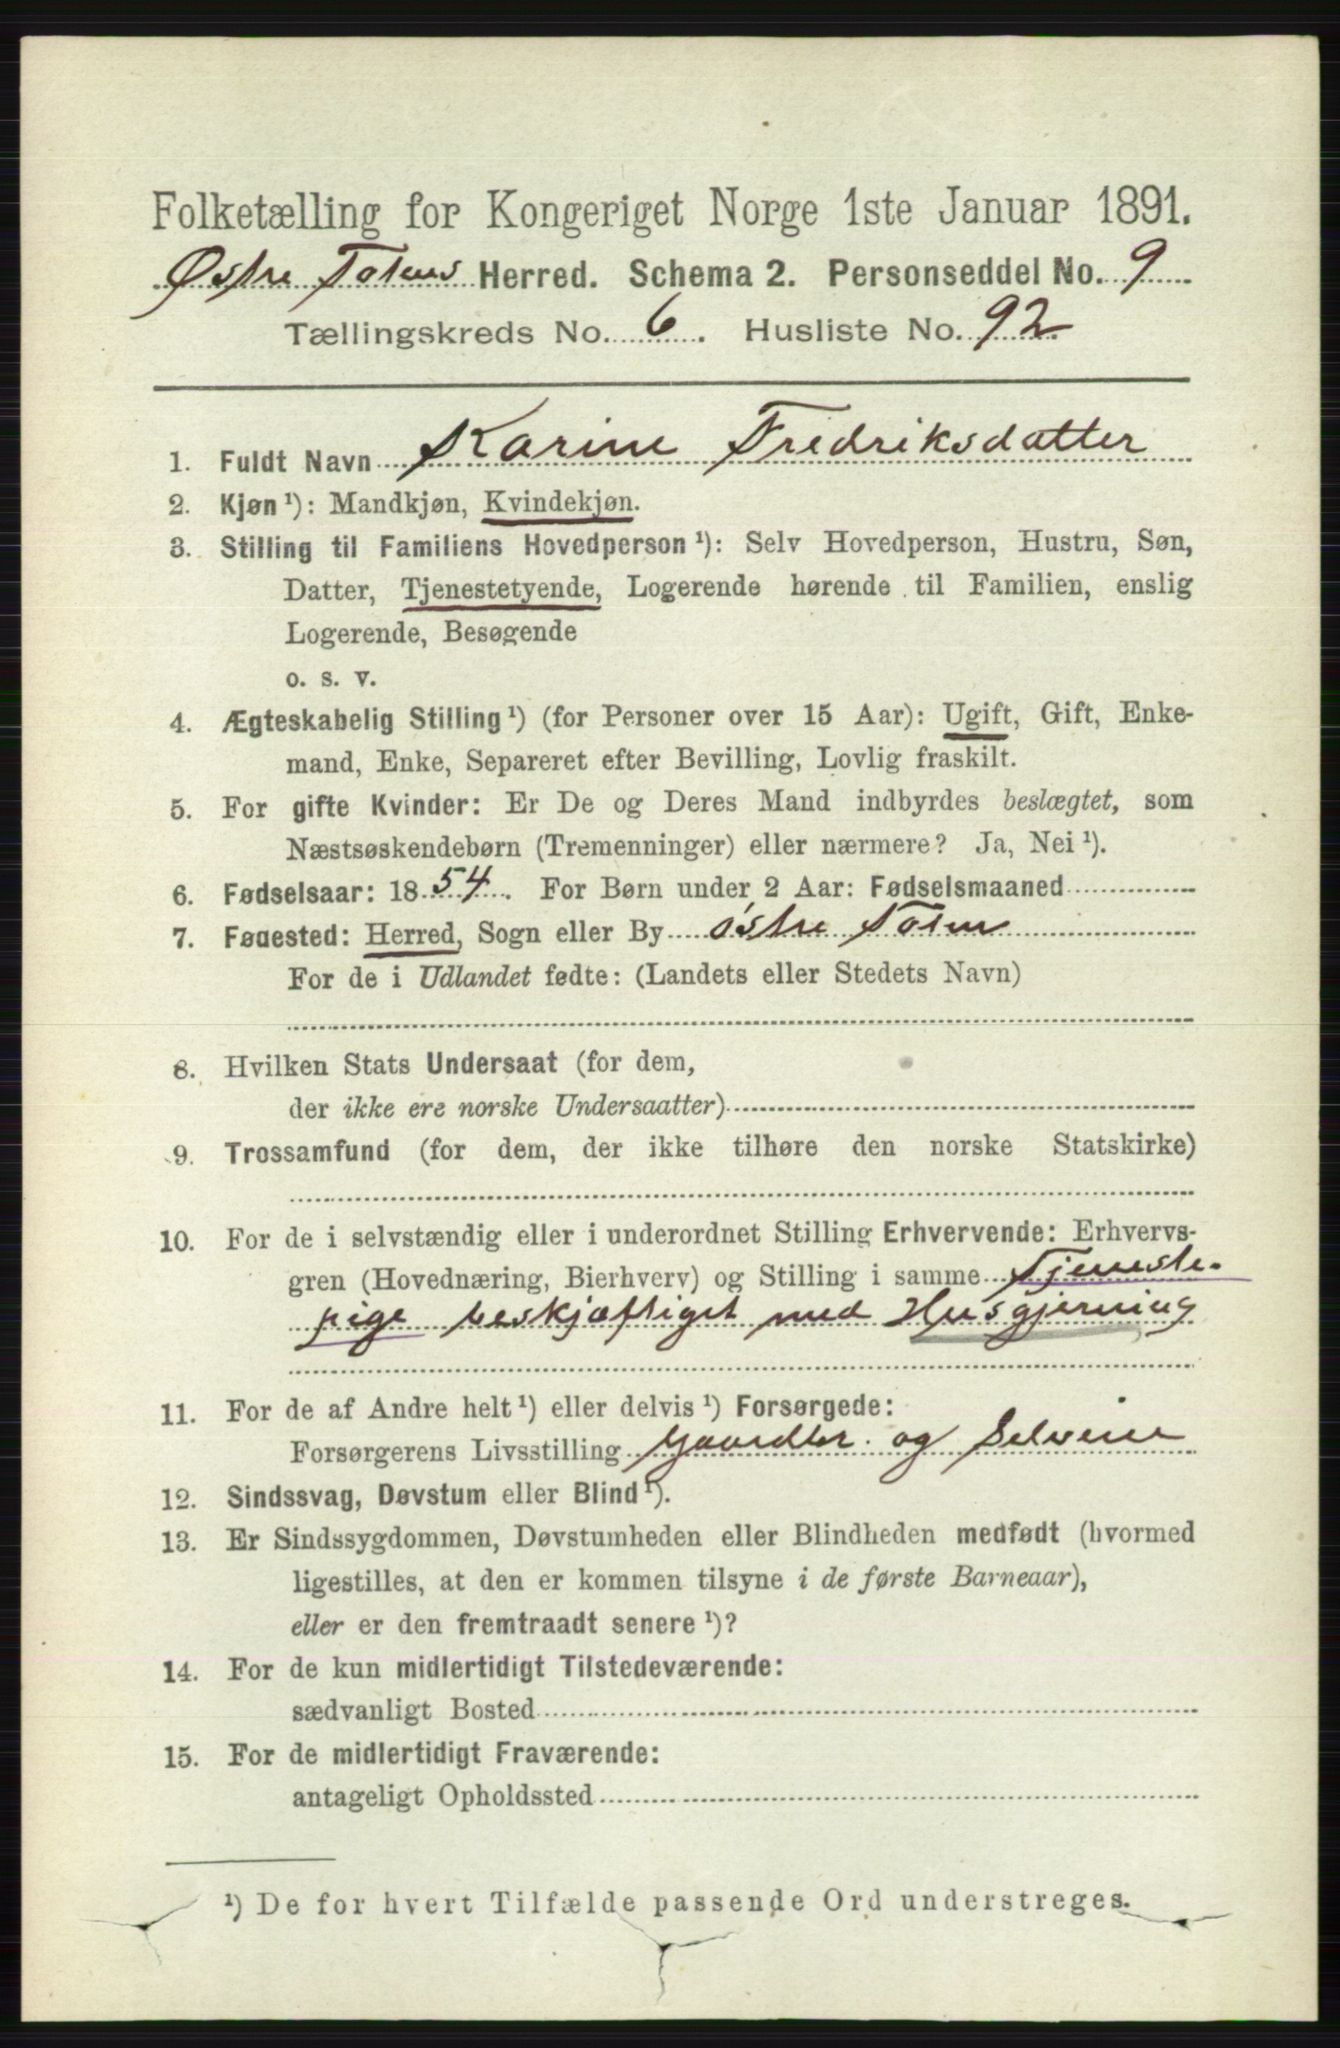 Folketælling for Kongeriget Norge 1ste Januar 1891.
Østre Totens Herred. Schema 2. Personseddel No. 9
Tællingskreds No. 6. Husliste No. 92
1. Fuldt Navn Karine Fredriksdatter
2. Kjøn ¹): Mandkjøn, Kvindekjøn.
3. Stilling til Familiens Hovedperson ¹): Selv Hovedperson, Hustru, Søn,
Datter, Tjenestetyende, Logerende hørende til Familien, enslig
Logerende, Besøgende
o. s. v.
4. Ægteskabelig Stilling ¹) (for Personer over 15 Aar): Ugift, Gift, Enke-
mand, Enke, Separeret efter Bevilling, Lovlig fraskilt.
5. For gifte Kvinder: Er De og Deres Mand indbyrdes beslægtet, som
Næstsøskendebørn (Tremenninger) eller nærmere? Ja, Nei ¹).
6. Fødselsaar: 1854. For Børn under 2 Aar: Fødselsmaaned
7. Fødested: Herred, Sogn eller By østre Toten
For de i Udlandet fødte: (Landets eller Stedets Navn)
8. Hvilken Stats Undersaat (for dem,
der ikke ere norske Undersaatter)
9. Trossamfund (for dem, der ikke tilhøre den norske Statskirke)
10. For de i selvstændig eller i underordnet Stilling Erhvervende: Erhvervs-
gren (Hovednæring, Bierhverv) og Stilling i samme Tjeneste-
pige beskjæftiget med Husgjerning
11. For de af Andre helt ¹) eller delvis ¹) Forsørgede:
Forsørgerens Livsstilling Gaardbr. og Selveier
12. Sindssvag, Døvstum eller Blind ¹).
13. Er Sindssygdommen, Døvstumheden eller Blindheden medfødt (hvormed
ligestilles, at den er kommen tilsyne i de første Barneaar),
eller er den fremtraadt senere ¹)?
14. For de kun midlertidigt Tilstedeværende:
sædvanligt Bosted
15. For de midlertidigt Fraværende:
antageligt Opholdssted
¹) De for hvert Tilfælde passende Ord understreges.